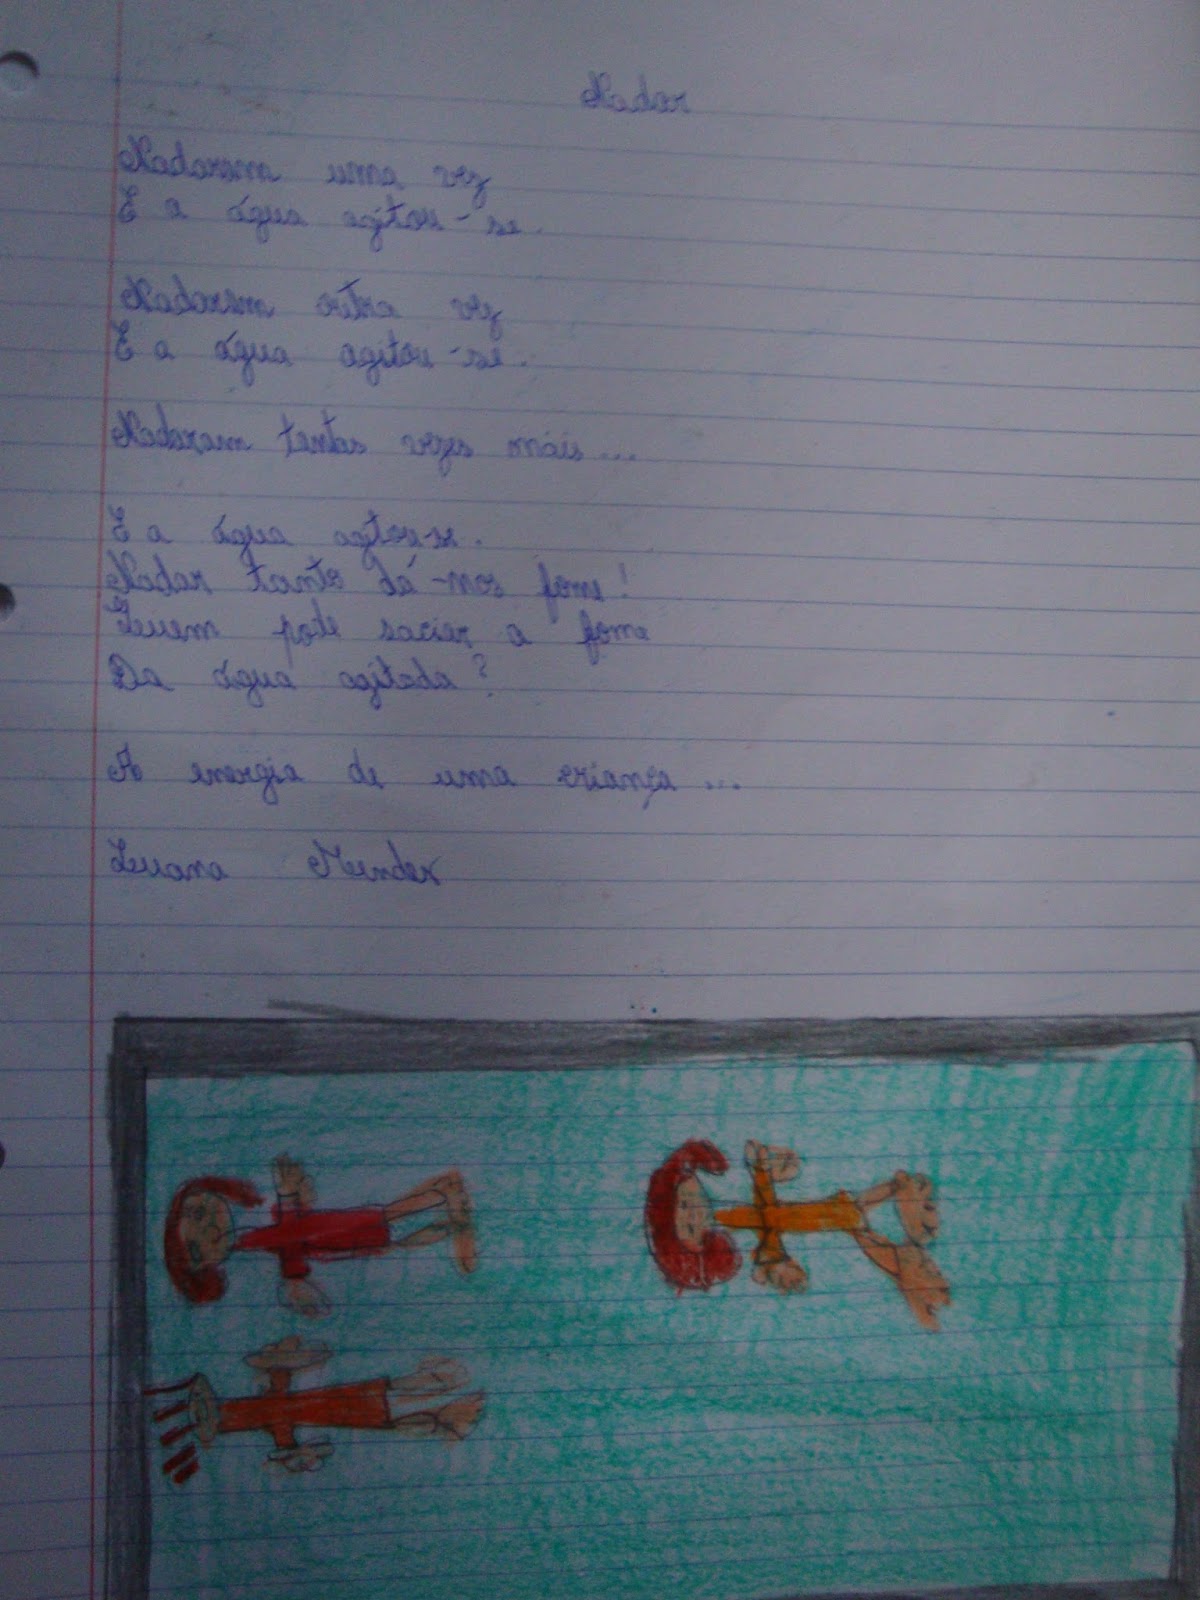 Nadar
Nadaram uma vez
E a água agitou-se.
Nadaram outra vez
E a água agitou-se.
Nadaram tantas vezes mais...
E a água agitou-se.
Nadar tanto dá-nos fome!
Quem pode saciar a fome
Da água agitada?
A energia de uma criança...
Luana Mendes